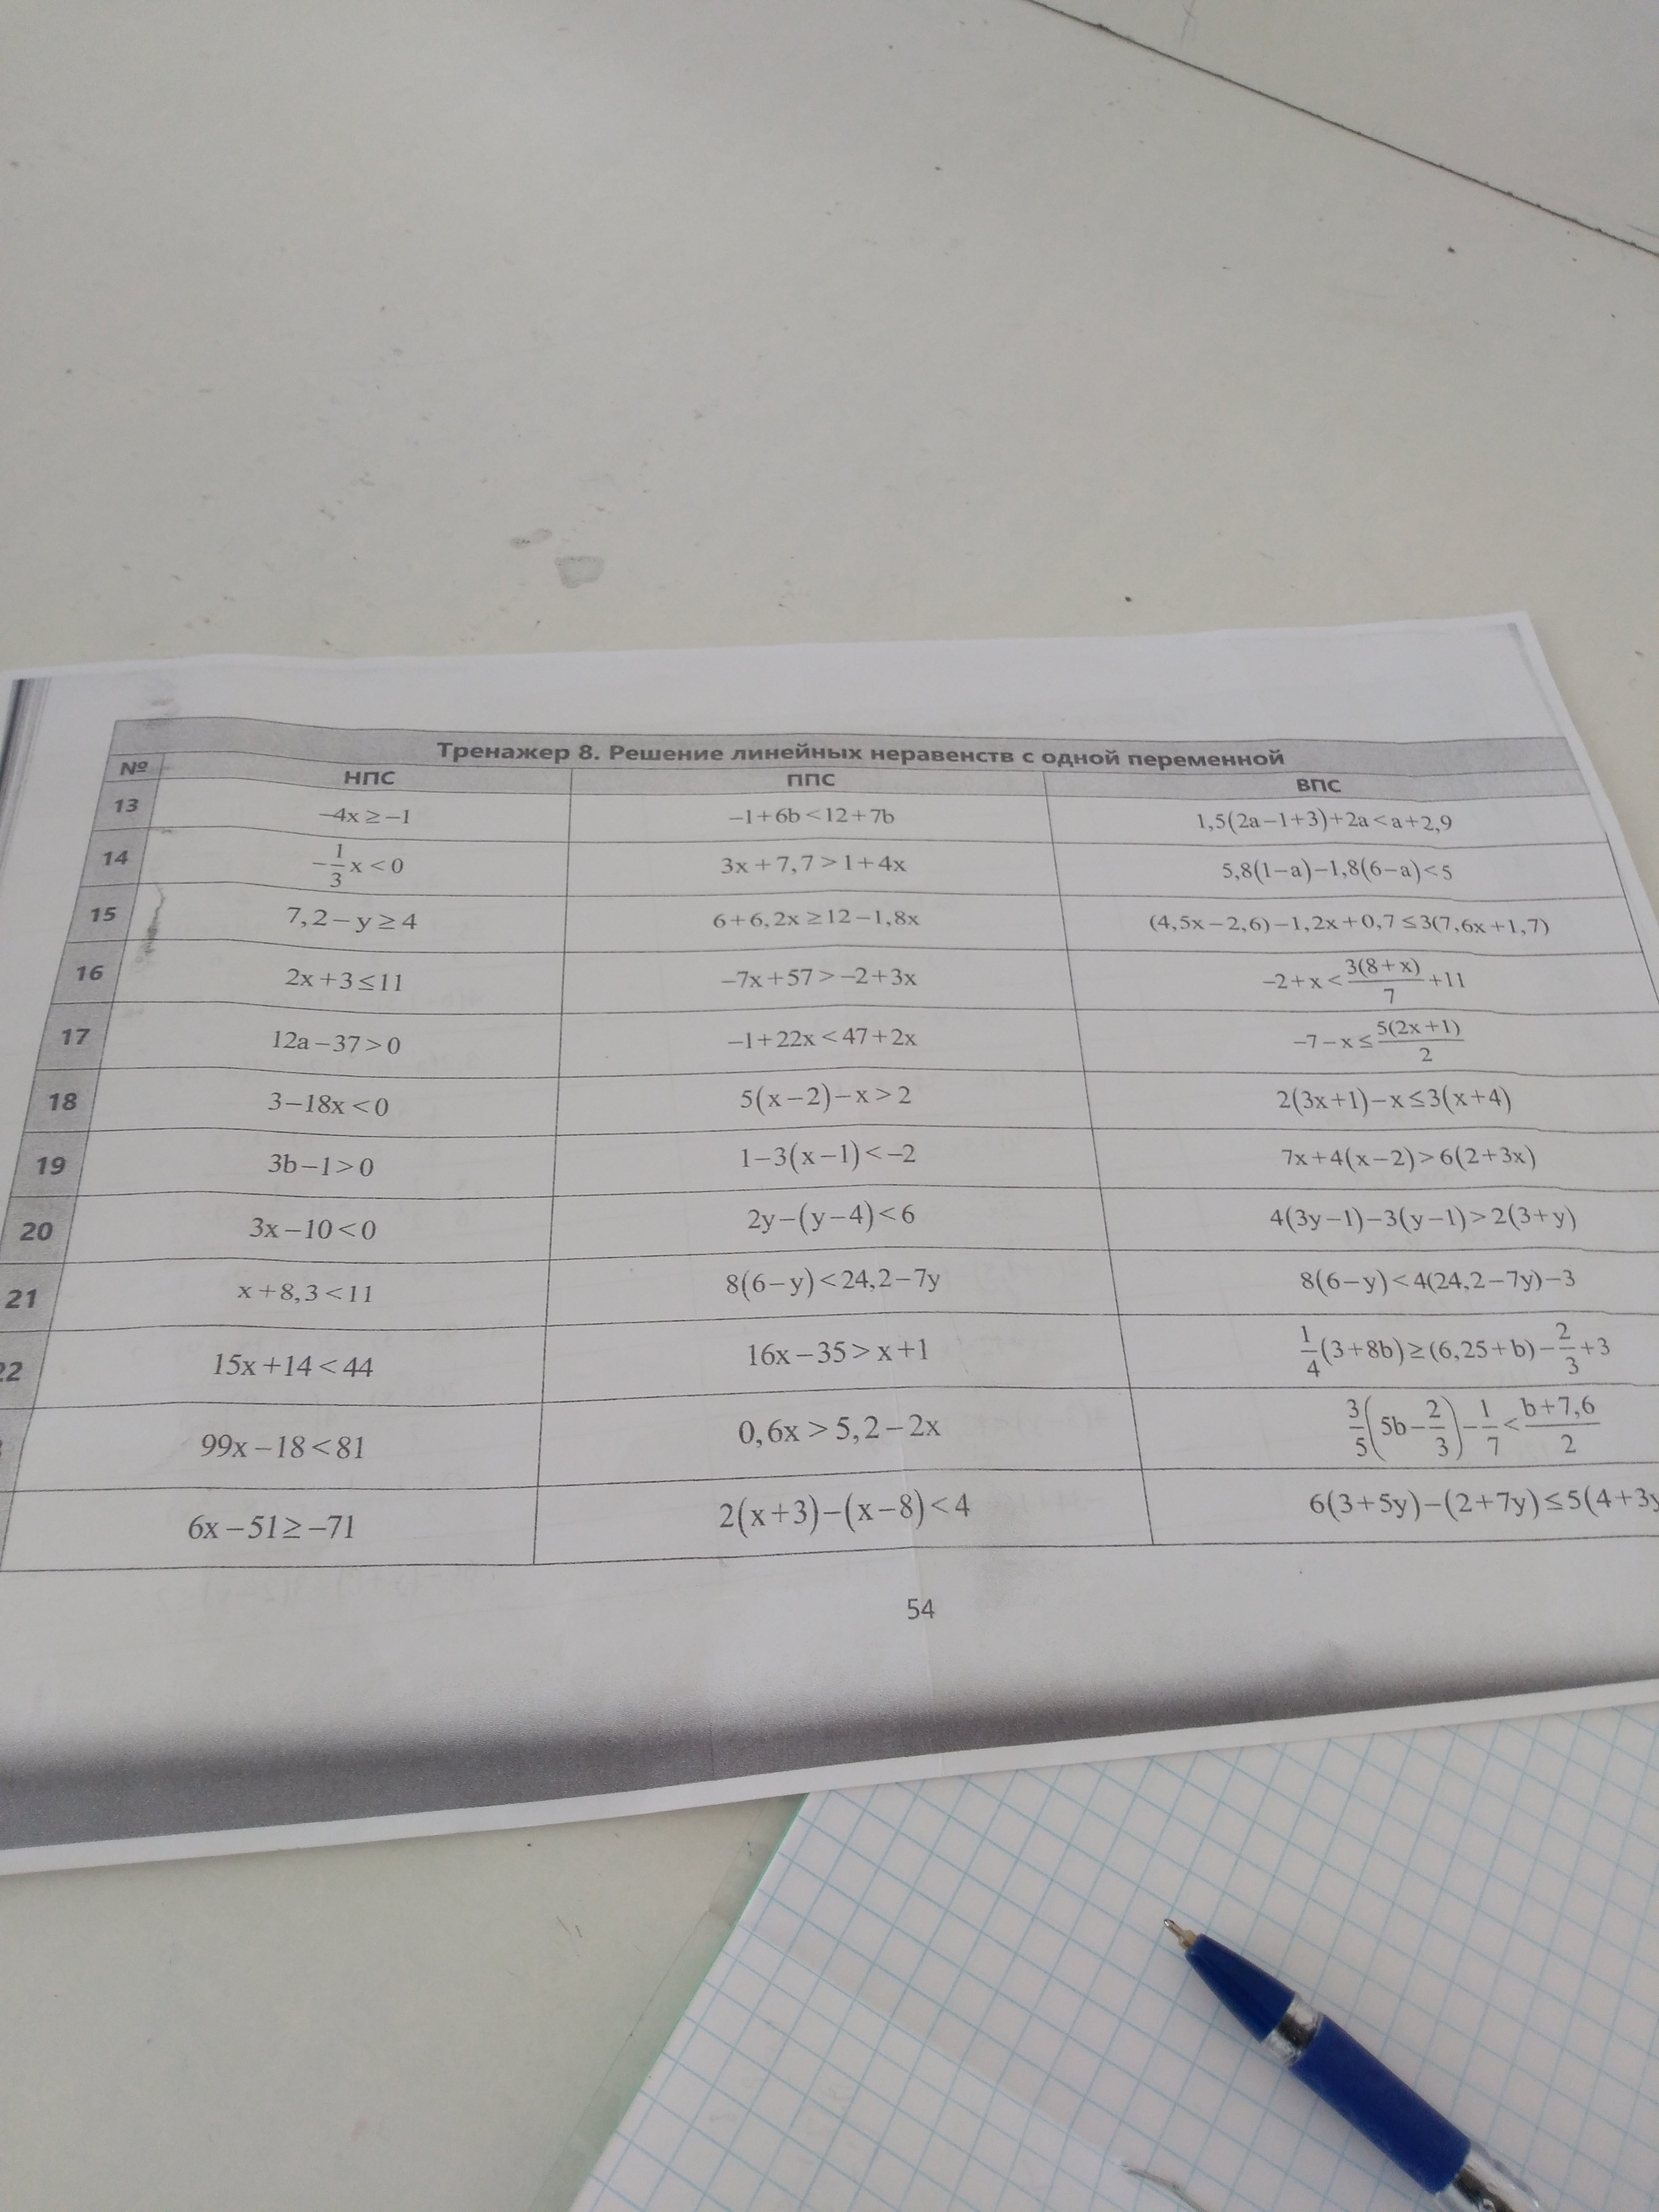 Тренажер 8. Решение линейных неравенств с одной переменной
№ НПС ППС ВПС
13 −4x ≥ −1 −1+6b < 12+7b 1,5(2a−1+3)+2a < a+2,9
14 −1/3 x < 0 3x+7,7 > 1+4x 5,8(1−a)−1,8(6−a) < 5
15 7,2−y ≥ 4 6+6,2x ≥ 12−1,8x (4,5x−2,6)−1,2x+0,7 ≤ 3(7,6x+1,7)
16 2x+3 ≤ 11 −7x+57 > −2+3x −2+x < 3(8+x)/7 +11
17 12a−37 > 0 −1+22x < 47+2x −7−x ≤ 5(2x+1)/2
18 3−18x < 0 5(x−2)−x > 2 2(3x+1)−x ≤ 3(x+4)
19 3b−1 > 0 1−3(x−1) < −2 7x+4(x−2) > 6(2+3x)
20 3x−10 < 0 2y−(y−4) < 6 4(3y−1)−3(y−1) > 2(3+y)
21 x+8,3 < 11 8(6−y) < 24,2−7y 8(6−y) < 4(24,2−7y)−3
22 15x+14 < 44 16x−35 > x+1 1/4(3+8b) ≥ (6,25+b)−2/3+3
99x−18 < 81 0,6x > 5,2−2x 3/5(5b−2/3)−1/7 < (b+7,6)/2
6x−51 ≥ −71 2(x+3)−(x−8) < 4 6(3+5y)−(2+7y) ≤ 5(4+3y
54